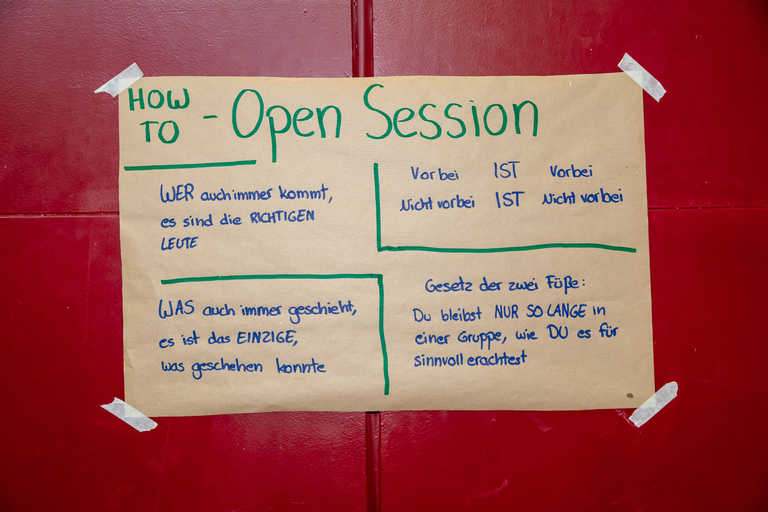 HOW TO - Open Session
WER auch immer kommt,
es sind die RICHTIGEN
LEUTE
Vorbei IST Vorbei
Nicht vorbei IST Nicht vorbei
WAS auch immer geschieht,
es ist das EINZIGE,
was geschehen konnte
Gesetz der zwei Füße:
Du bleibst NUR SO LANGE in
einer Gruppe, wie DU es für
sinnvoll erachtest